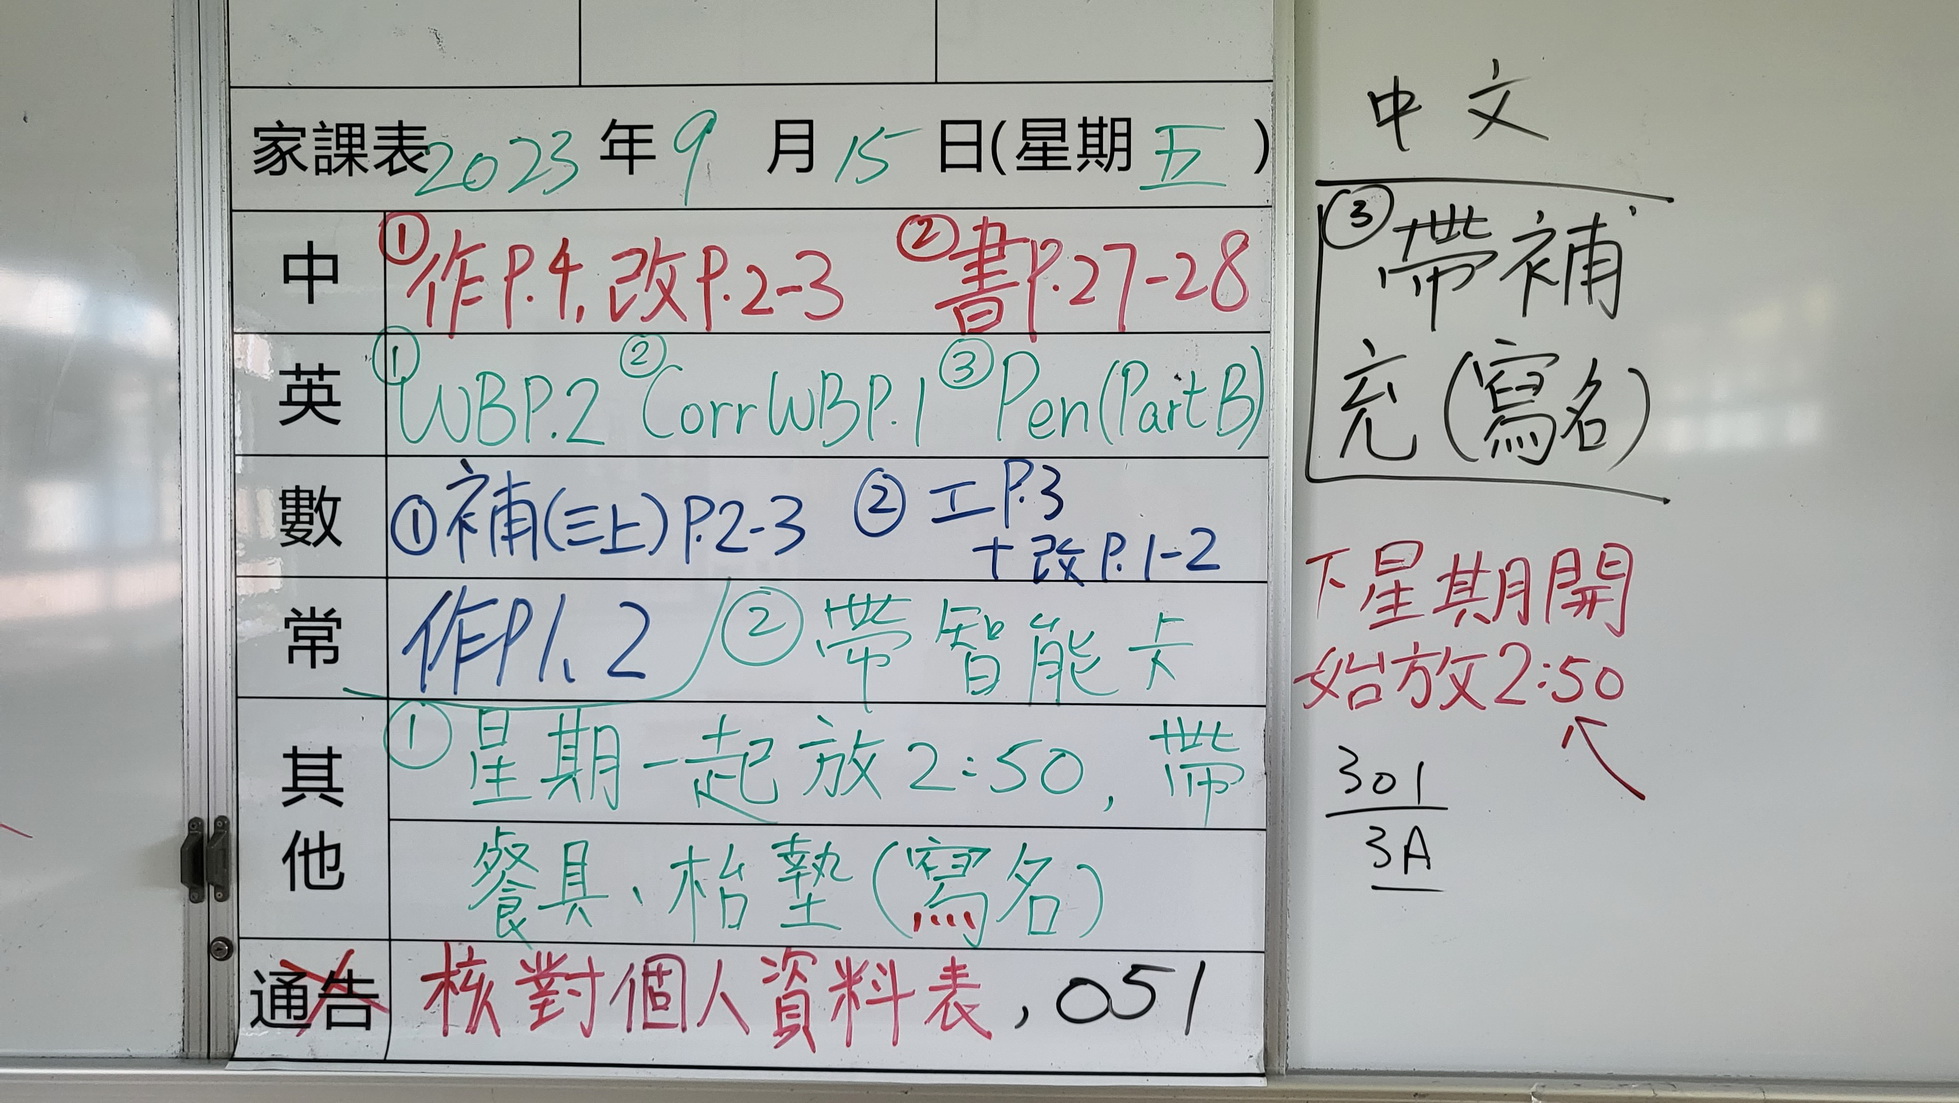 家課表 2023 年 9 月 15 日(星期 五 )
中 ①作P.4, 改P.2-3 ②書P.27-28
英 ①WBP.2 ②Corr WBP.1 ③Pen(Part B)
數 ①補(三上)P.2-3 ②工P.3
+改P.1-2
常 作P1、2 ②帶智能卡
其他 ①星期一起放2:50, 帶
餐具、枱墊(寫名)
通告 核對個人資料表, 051
中文
③帶補
充(寫名)
下星期開
始放2:50
301
3A